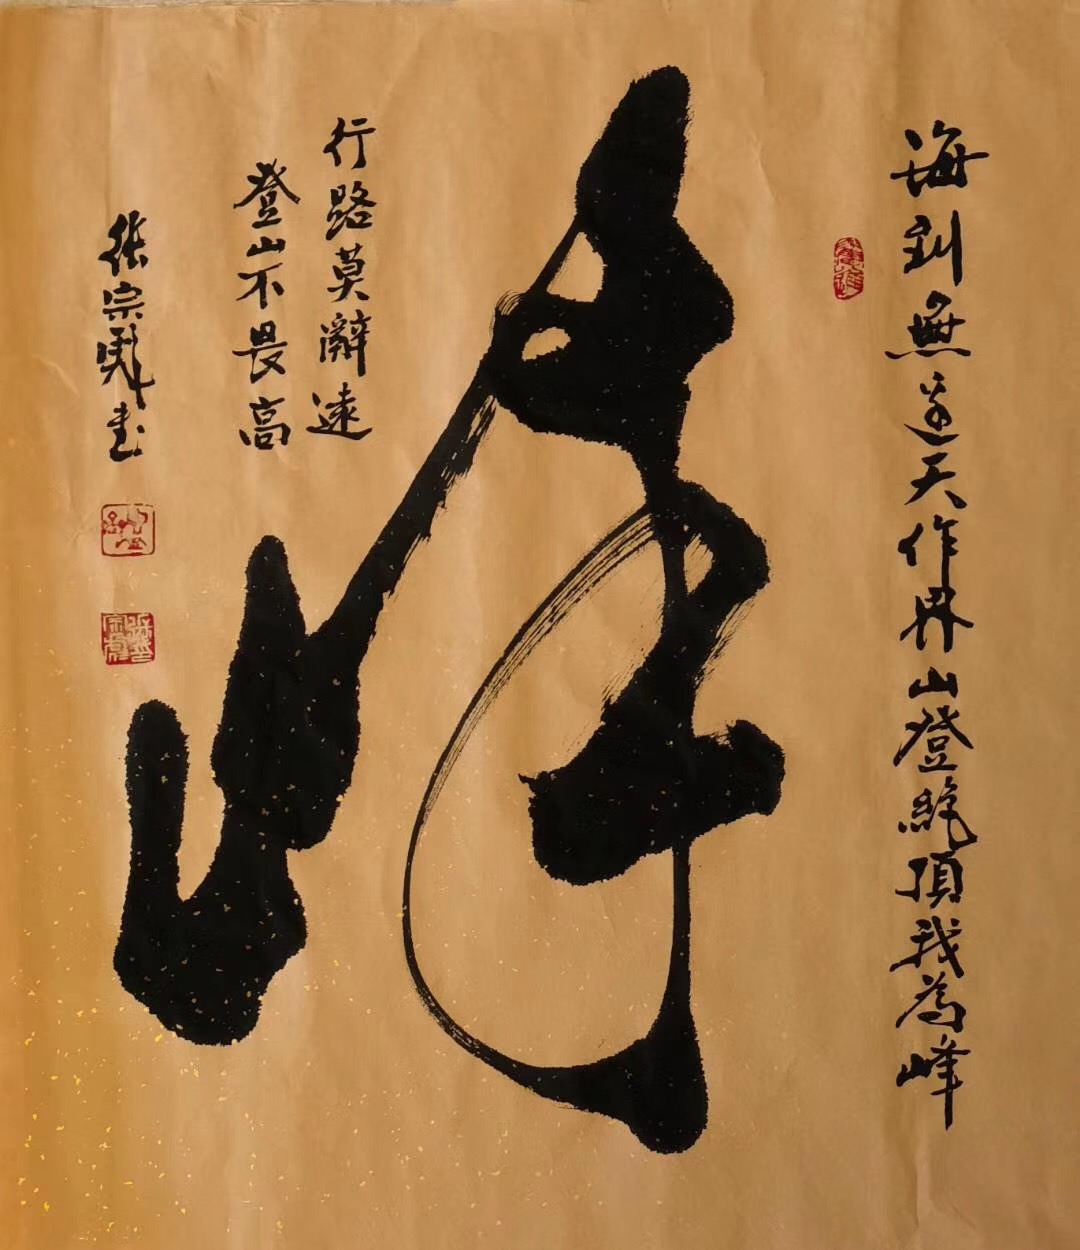 海到無邊天作界山登絶頂我為峰
峰
行路莫辭遠
登山不畏高
張宗彪書